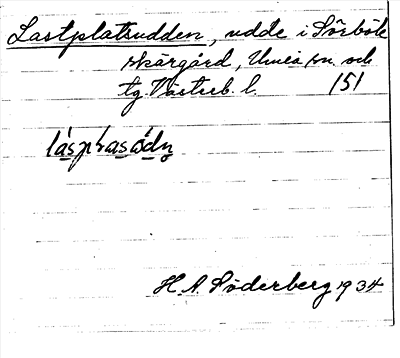 Lastplatsudden, udde i Sörböle
skärgård, Umeå sn. och
tg. Västerb. l. 151
lásplasòdn̥
H. A. Söderberg 1934